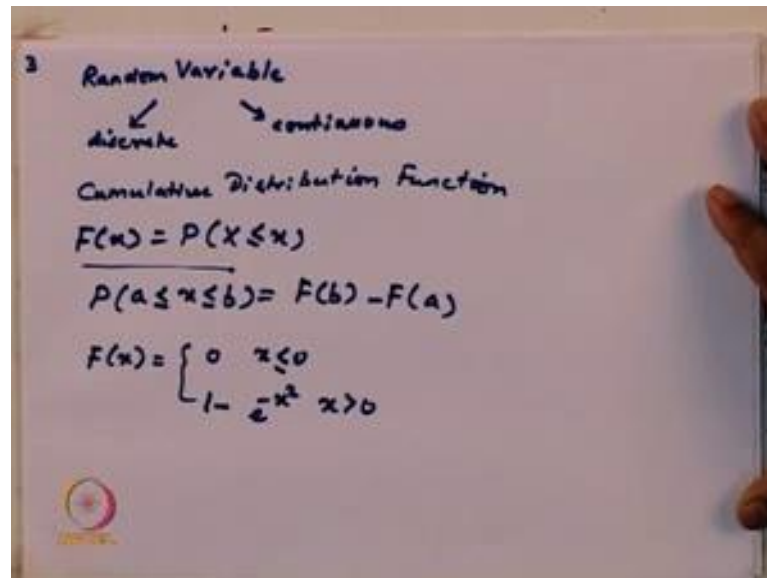 3 Random Variable
discrete continuous
Cumulative Distribution Function
F(x) = P(X ≤ x)
P(a ≤ x ≤ b) = F(b) - F(a)
F(x) = { 0 x ≤ 0
1 - e^-x² x > 0